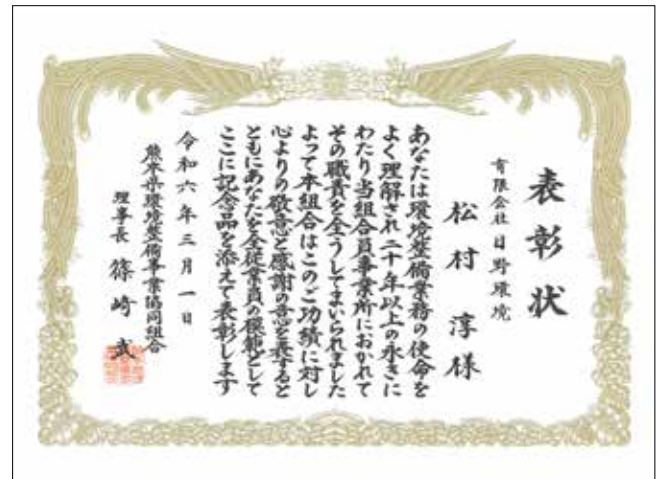 表彰状
有限会社 日野環境
松村 淳 様
あなたは環境整備業務の使命を
よく理解され二十年以上の永きに
わたり当組合員事業所におかれて
その職責を全うしてまいられました
よって本組合はこのご功績に対し
心よりの敬意と感謝の意を表すると
ともにあなたを全従業員の模範として
ここに記念品を添えて表彰します
令和六年三月一日
熊本県環境整備事業協同組合
理事長 篠崎 武